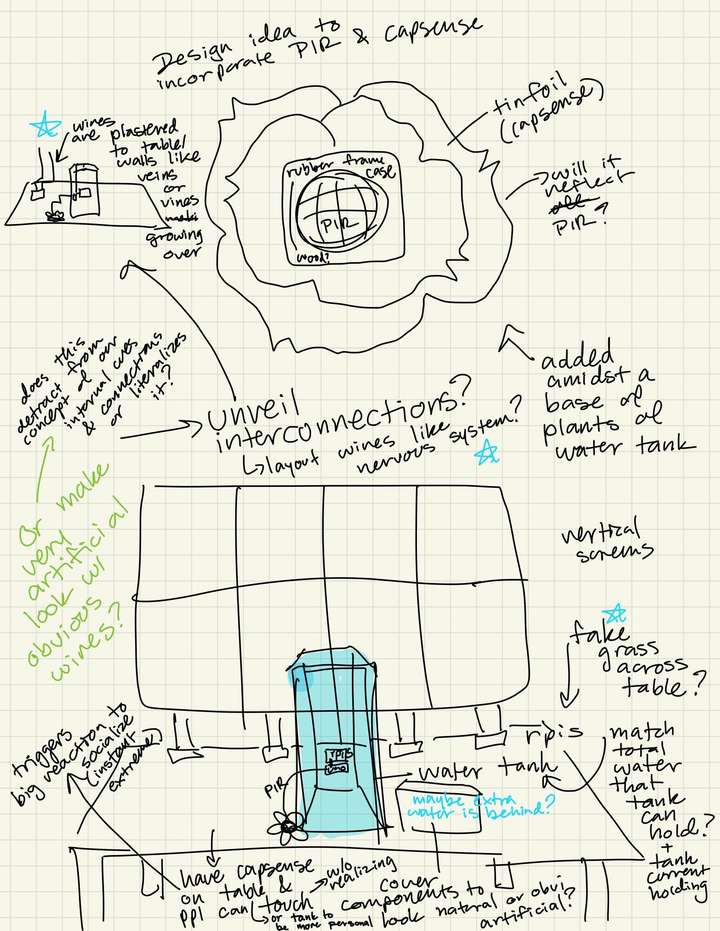 Design idea to
incorporate PIR & capsense
wires
are plastered
to table/
walls like
veins
or
vines
growing
over
tinfoil
(capsense)
rubber frame
case
PIR
wood?
will it
reflect
PIR?
does this
detract from
concept of our
internal cues
& connections
or literalizes
it?
unveil
interconnections?
↳layout wires like
nervous system?
added
amidst a
base of
plants of
water tank
Or make
very
artificial
look w/
obvious
wires?
vertical
screens
fake
grass
across
table?
rpis
triggers
big reaction to
socialize
(instant
extreme)
rpis
uno
PIR
water tank
maybe extra
water is behind?
match
total
water
that
tank
can
hold?
+
tank
current
holding
have capsense
on table &
ppl can touch
w/o
realizing
↳or tank to
be more personal
cover
components to
look natural or obvi
artificial?